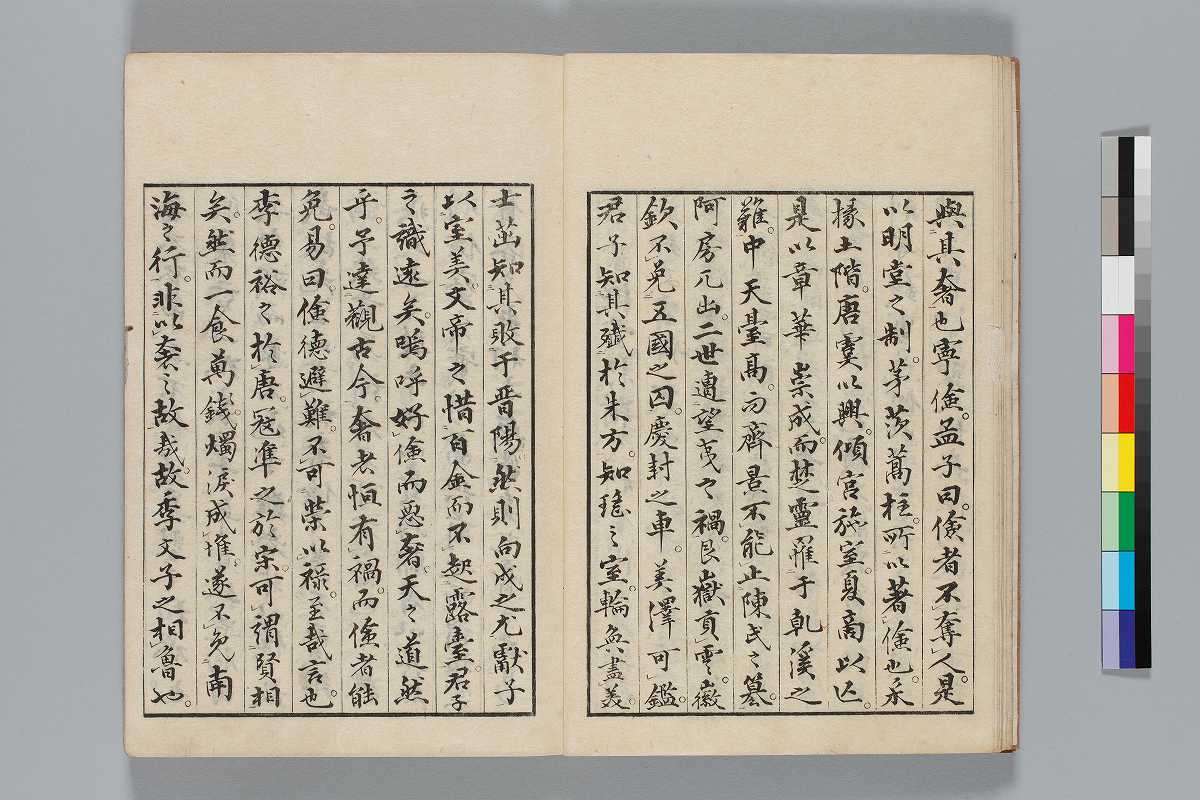 與其奢也寧儉。孟子曰。儉者不奪人。是
以明堂之制。茅茨蒿柱。所以著儉也。采
椽土階。唐虞以興。傾宮旋室。夏商以亡。
是以章華崇成。而楚靈罹于乾溪之
難。中天臺高。而齊景不能止陳氏之簒。
阿房兀出。二世遭望夷之禍。艮嶽貢雲。徽
欽不免五國之囚。慶封之車。美澤可鑑。
君子知其殲於朱方。知瑤之室。輪奐盡美。
士茁知其敗于晋陽。然則向戌之尤獻子
以室美。文帝之惜百金而不起露臺。君子
之識遠矣。嗚呼好儉而惡奢。天之道然
乎。予達觀古今。奢者恒有禍。而儉者能
免。易曰。儉德避難。不可榮以祿。至哉言也。
李德裕之於唐。冦準之於宋。可謂賢相
矣。然而一食萬錢。燭淚成堆。遂不免南
海之行。非以奢之故哉。故季文子之相魯也。